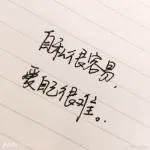 自私很容易，
爱自己很难。